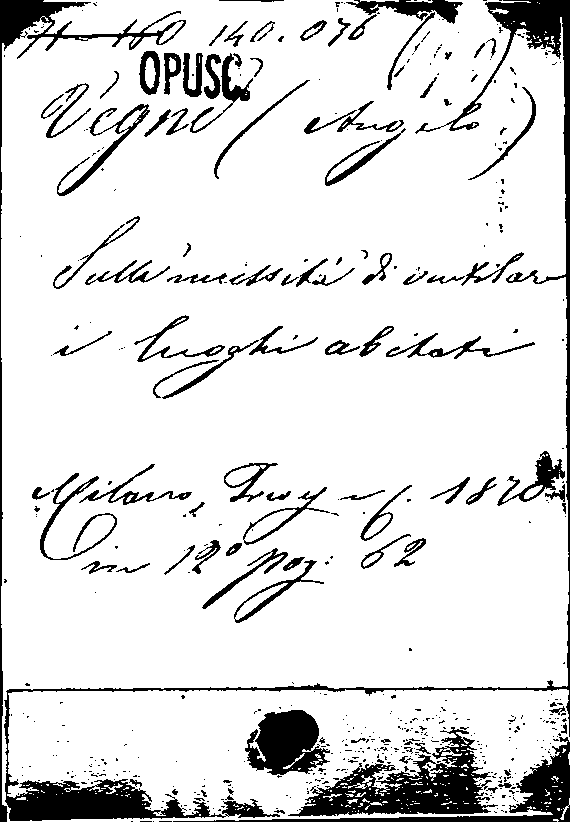 H 160 140.076
OPUSC.
Vegni (Angelo)
Sulla necessità di ventilare
i luoghi abitati
Milano, Treves e C. 1870
in 12° pag: 62